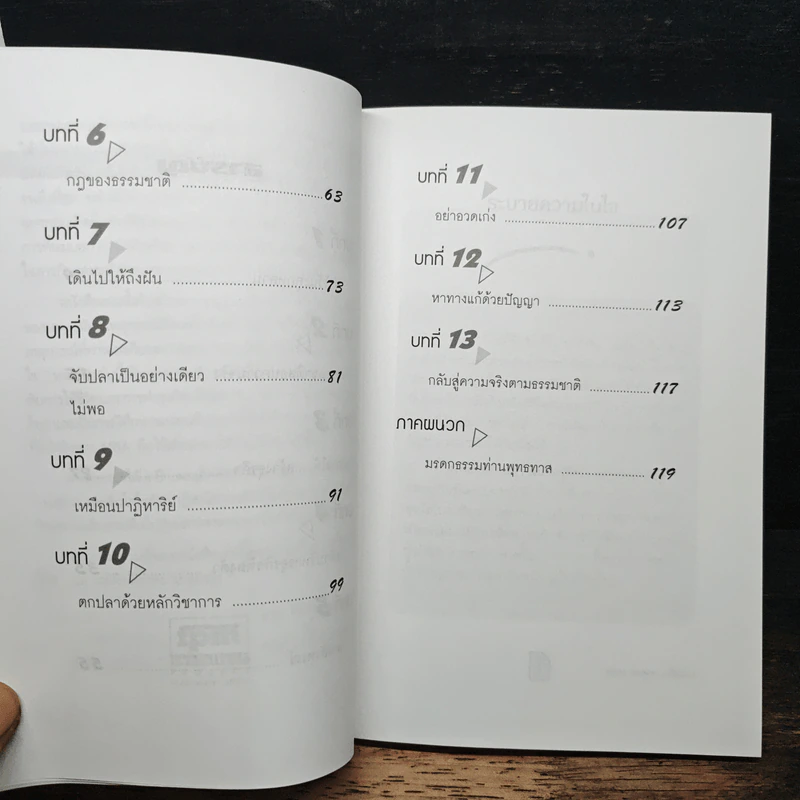 บทที่ 6
กฎของธรรมชาติ ........................ 63
บทที่ 7
เดินไปให้ถึงฝัน ........................ 73
บทที่ 8
จับปลาเป็นอย่างเดียว ........................ 81
ไม่พอ
บทที่ 9
เหมือนปาฏิหาริย์ ........................ 91
บทที่ 10
ตกปลาด้วยหลักวิชาการ ........................ 99
บทที่ 11
อย่าอวดเก่ง ........................ 107
บทที่ 12
หาทางแก้ด้วยปัญญา ........................ 113
บทที่ 13
กลับสู่ความจริงตามธรรมชาติ ........................ 117
ภาคผนวก
มรดกธรรมท่านพุทธทาส ........................ 119